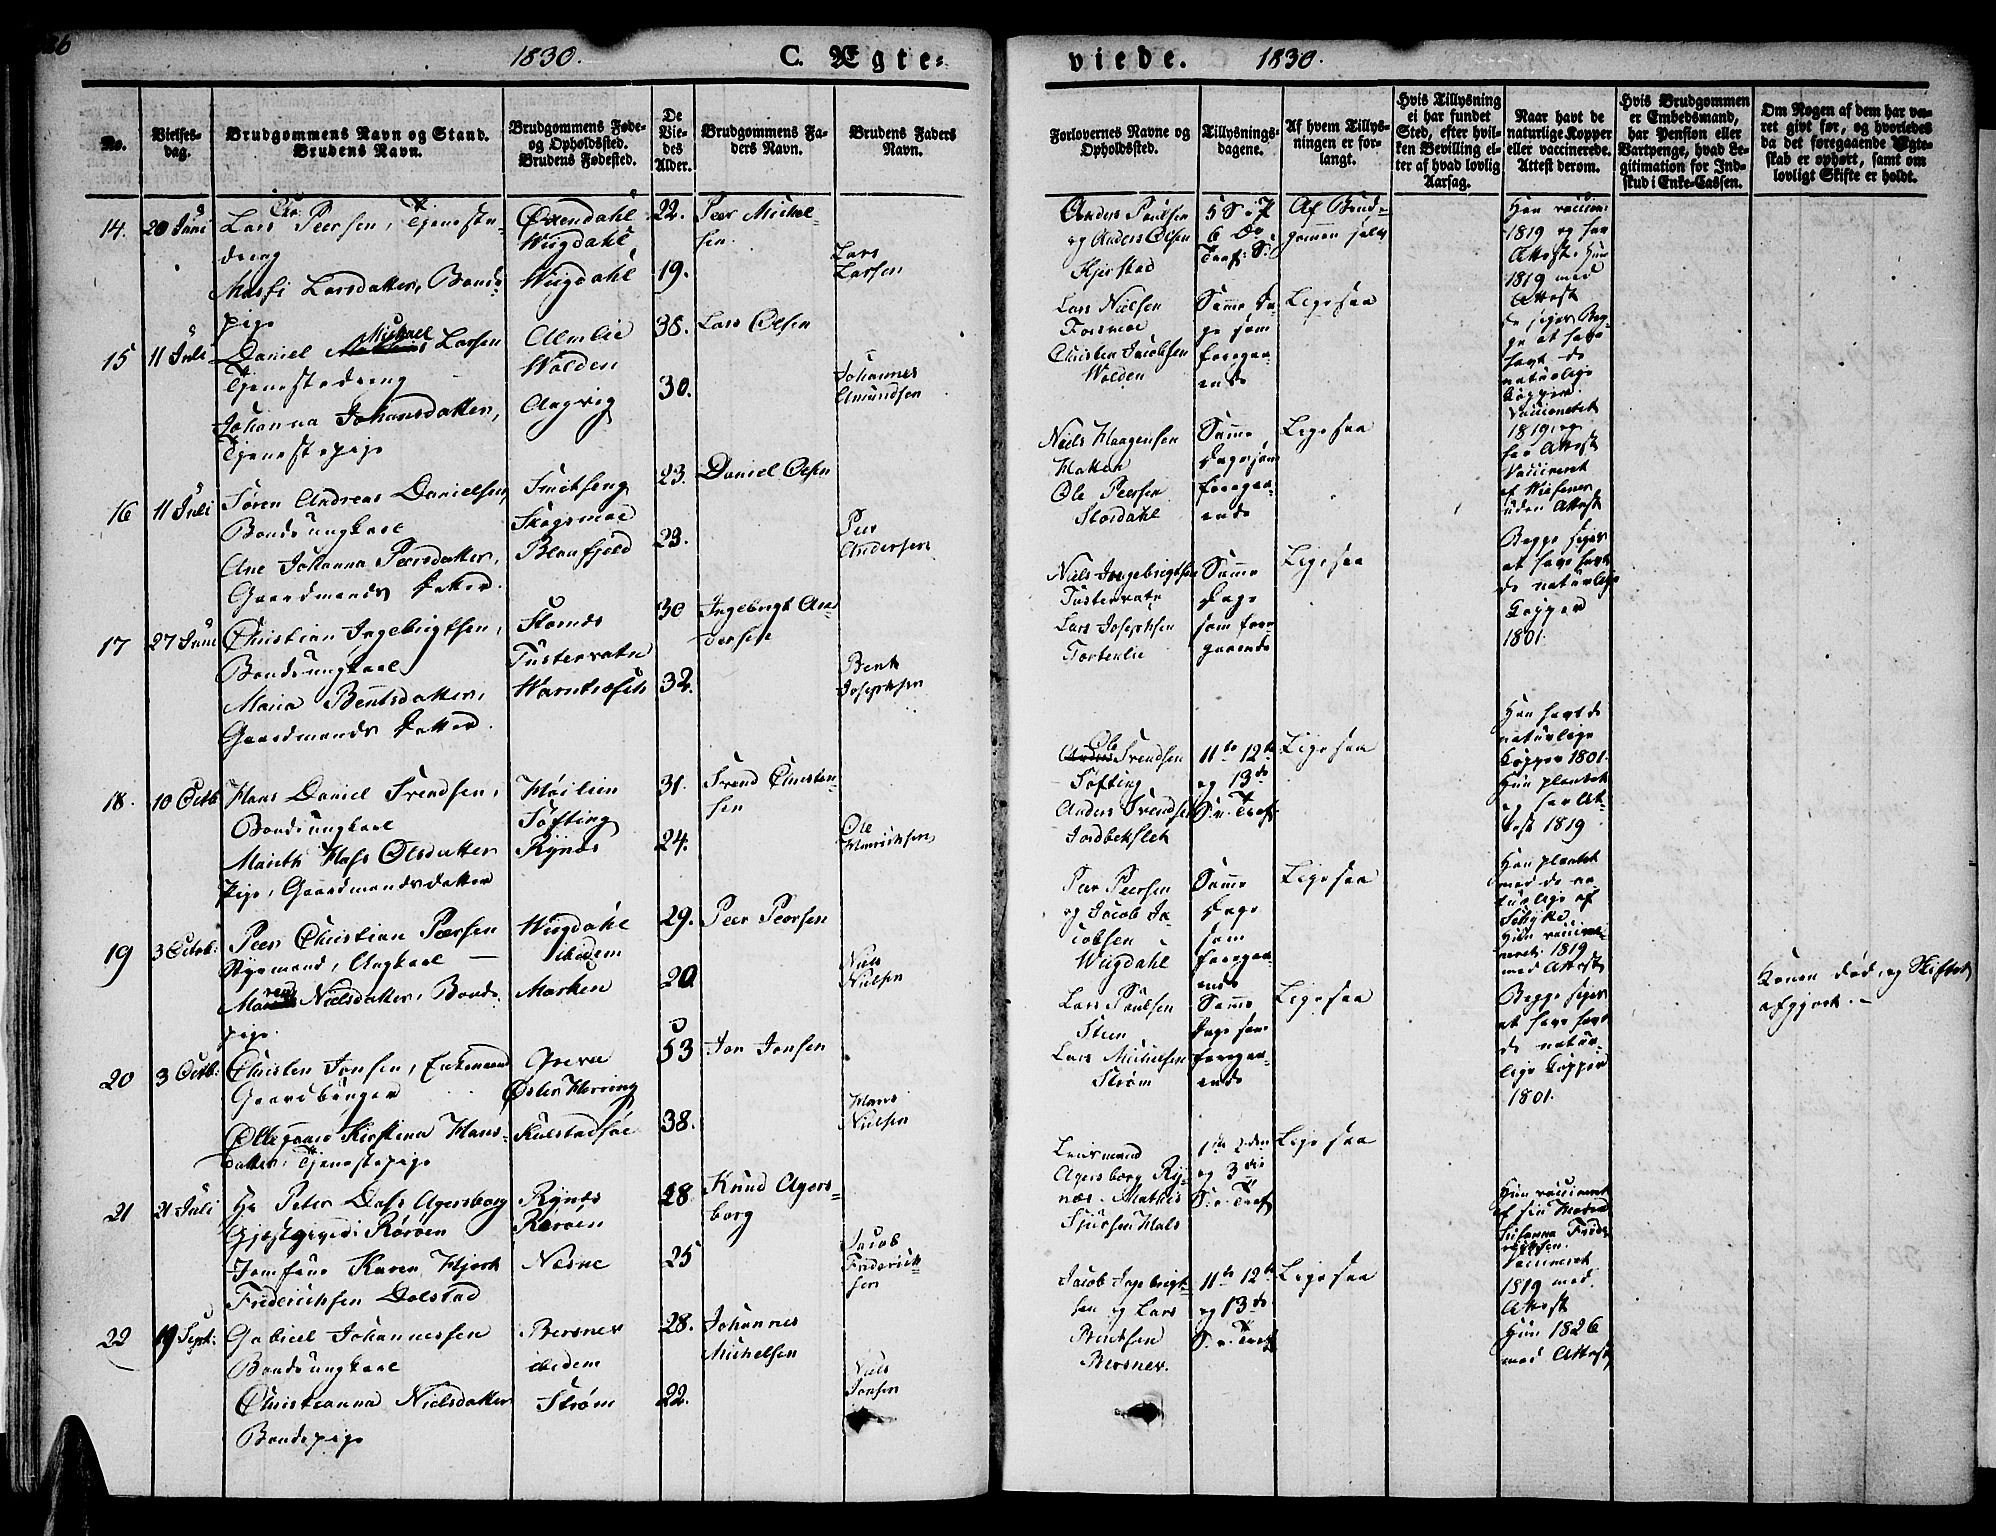 26
1830.
C. Ægte-
viede.
1830.
No.
Vielses-
dag.
Brudgommens Navn og Stand.
Brudens Navn.
Brudgommens Føde-
og Opholdssted.
Brudens Fødested.
De
Vie-
des
Alder.
Brudgommens Fa-
ders Navn.
Brudens Faders
Navn.
Forlovernes Navne og
Opholdssted.
Tillysnings-
dagene.
Af hvem Tillys-
ningen er for-
langt.
Hvis Tillysning
ei har fundet
Sted, efter hvil-
ken Bevilling el-
ler af hvad lovlig
Aarsag.
Naar havt de
naturlige Kopper
eller vaccinerede.
Attest derom.
Hvis Brudgommen
er Embedsmand,
har Pension eller
Vartpenge, hvad Le-
gitimation for Ind-
skud i Enke-Cassen.
Om Nogen af dem har væ-
ret givt før, og hvorledes
da det foregaaende Ægte-
skab er ophørt, samt om
lovligt Skifte er holdt.
14.
20 Juni
Lars Peersen, Tjeneste-
dreng
Marsi Larsdatter, Bonde-
pige
Øxendahl
Wiigdahl
Wiigdahl
22.
19.
Peer Michel-
sen.
Lars
Larsen
Anders Paulsen
og Anders Olsen
Kjerstad
5 S. 7
6 Do
Tref: S:
Af Brud-
gommen selv
Han vaccin:
1819 og har
Attest. Hun
1819 med
Attest
15
11 Juli
Daniel Michael Larsen
Tjenestedreng
Johanna Johansdatter,
Tjenestepige
Almlie
Wolden
Angvig
38.
30.
Lars Olsen
Johannes
Amundsen
Lars Nielsen
Forsmoe
Christen Jacobsen
Wolden
Samme Da-
ge som
foregaa-
ende
Ligesaa
de siger Beg-
ge at have
havt de
naturlige
Kopper.
16
11 Juli
Søren Andreas Danielsen
Bondeungkarl
Ane Johanna Peersdatter,
Gaardmands Datter.
Smitseng
Skogsmoe
Blaafjeld
23.
23.
Daniel Olsen
Peer
Andersen
Niels Haagensen
Hatten
Ole Peersen
Stordahl
Samme
Dage som
foregaa-
ende
Ligesaa
Vaccineret
1819 og
har Attest
Vaccineret
af Wiesener
uden Attest
17
27 Juni
Christian Ingebrigtsen,
Bondeungkarl
Maria Bentsdatter,
Gaardmands Datter.
Stornæs
Tustervatn
30
32.
Ingebrigt An-
dersen
Bent
Josephsen
Niels Ingebrigtsen
Tustervatn
Lars Josephsen
Fortenlie
Samme
Dage
som fore-
gaaende
Ligesaa
Begge siger
at have havt
de naturlige
Kopper
1801.
18.
10 Octb
Hans Daniel Svendsen,
Bondeungkarl
Mareth Hass Olsdatter
Pige, Gaardmandsdatter
Høilien
Søfting
Rynes
31.
24.
Svend Christen-
sen
Ole
Henrichsen
Ole Svendsen
Søfting
Anders Svendsen
Jordbekslet
11te 12te
og 13de
S. v. Tref
Ligesaa
Han havt de
naturlige
Kopper 1801.
Hun plantet
og har At-
test 1819
19
3 Octob:
Peer Christian Peersen
Styrmand, Ungkarl —
Maren Nielsdatter, Bonde-
pige.
Wiigdahl
ibidem
Marken
29.
20
Peer Peersen
Niels
Nielsen
Peer Peersen
og Jacob Ja-
cobsen
Wiigdahl
Samme
Dage
som
foregaa-
ende
Ligesaa
Han plantet
med de na-
turlige af
Hun vaccine-
ret 1819
med Attest
20
3 Octb:
Christen Jonsen, Enkemand
Gaardbruger
Øllegaard Kirstina Hans-
datter, Tjenestepige
Øster Herring
Kulstadsøe
53
38.
Jon Jonsen
Hans
Nielsen
Lars Paulsen
Steen
Lars Michelsen
Strøm
Samme
Dage som
foregaa-
ende
Ligesaa
Begge siger
at have havt
de natur-
lige Kopper
1801.
Konen død, og Skiftet
afgjort. —
21
21 Juli
Hr Peter Dass Agersborg
Gjæstgiver i Rørøen
Jomfrue Karen Hjort
Friderichsen Dolstad
Rynes
Rørøen
Nesne
28
25
Knud Agers-
borg
Jacob
Friderich-
sen
Lensmand
Agersborg Ry-
næs. Mathis
Sjursen Hals
1ste 2den
og 3die
S. v. Tref
Ligesaa
Hun vaccineret
af sin Moder
Susanna Fride-
richsen.
22
19 Sept:
Gabriel Johannessen
Bondeungkarl
Christianna Nielsdatter
Bondepige
Bersnes
ibidem
Strøm
28.
22.
Johannes
Michelsen
Niels
Jonsen
Jacob Ingebrigt-
sen og Lars
Bentsen
Bersnes.
11te 12te
og 13de
S. v. Tref
Ligesaa
Vaccineret
1819 med
Attest
Hun 1826
med Attest